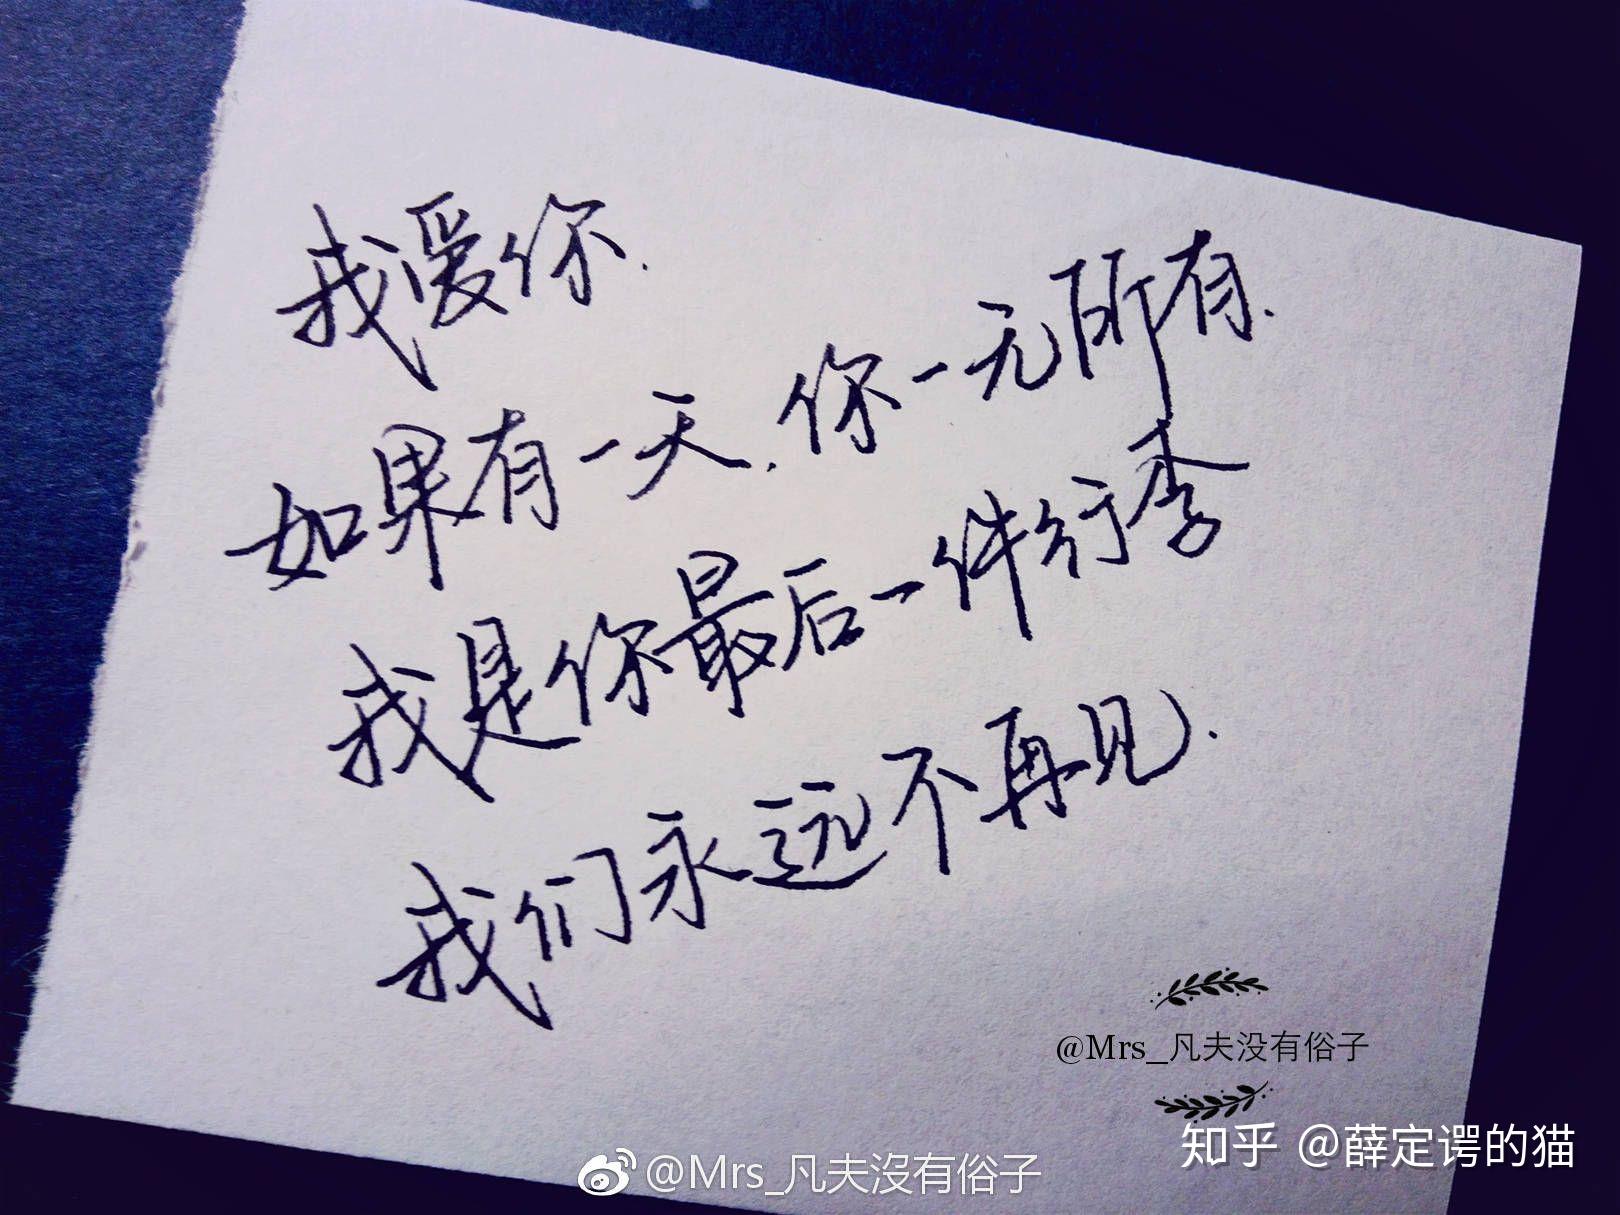 我爱你.
如果有一天.你一无所有.
我是你最后一件行李
我们永远不再见.
@Mrs_凡夫没有俗子
知乎 @薛定谔的猫
@Mrs_凡夫沒有俗子